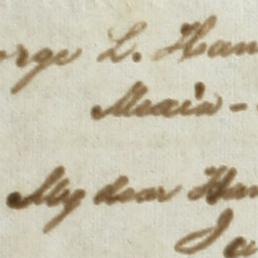 orge L. Ham
Mexia -
My dear Ham
Ja